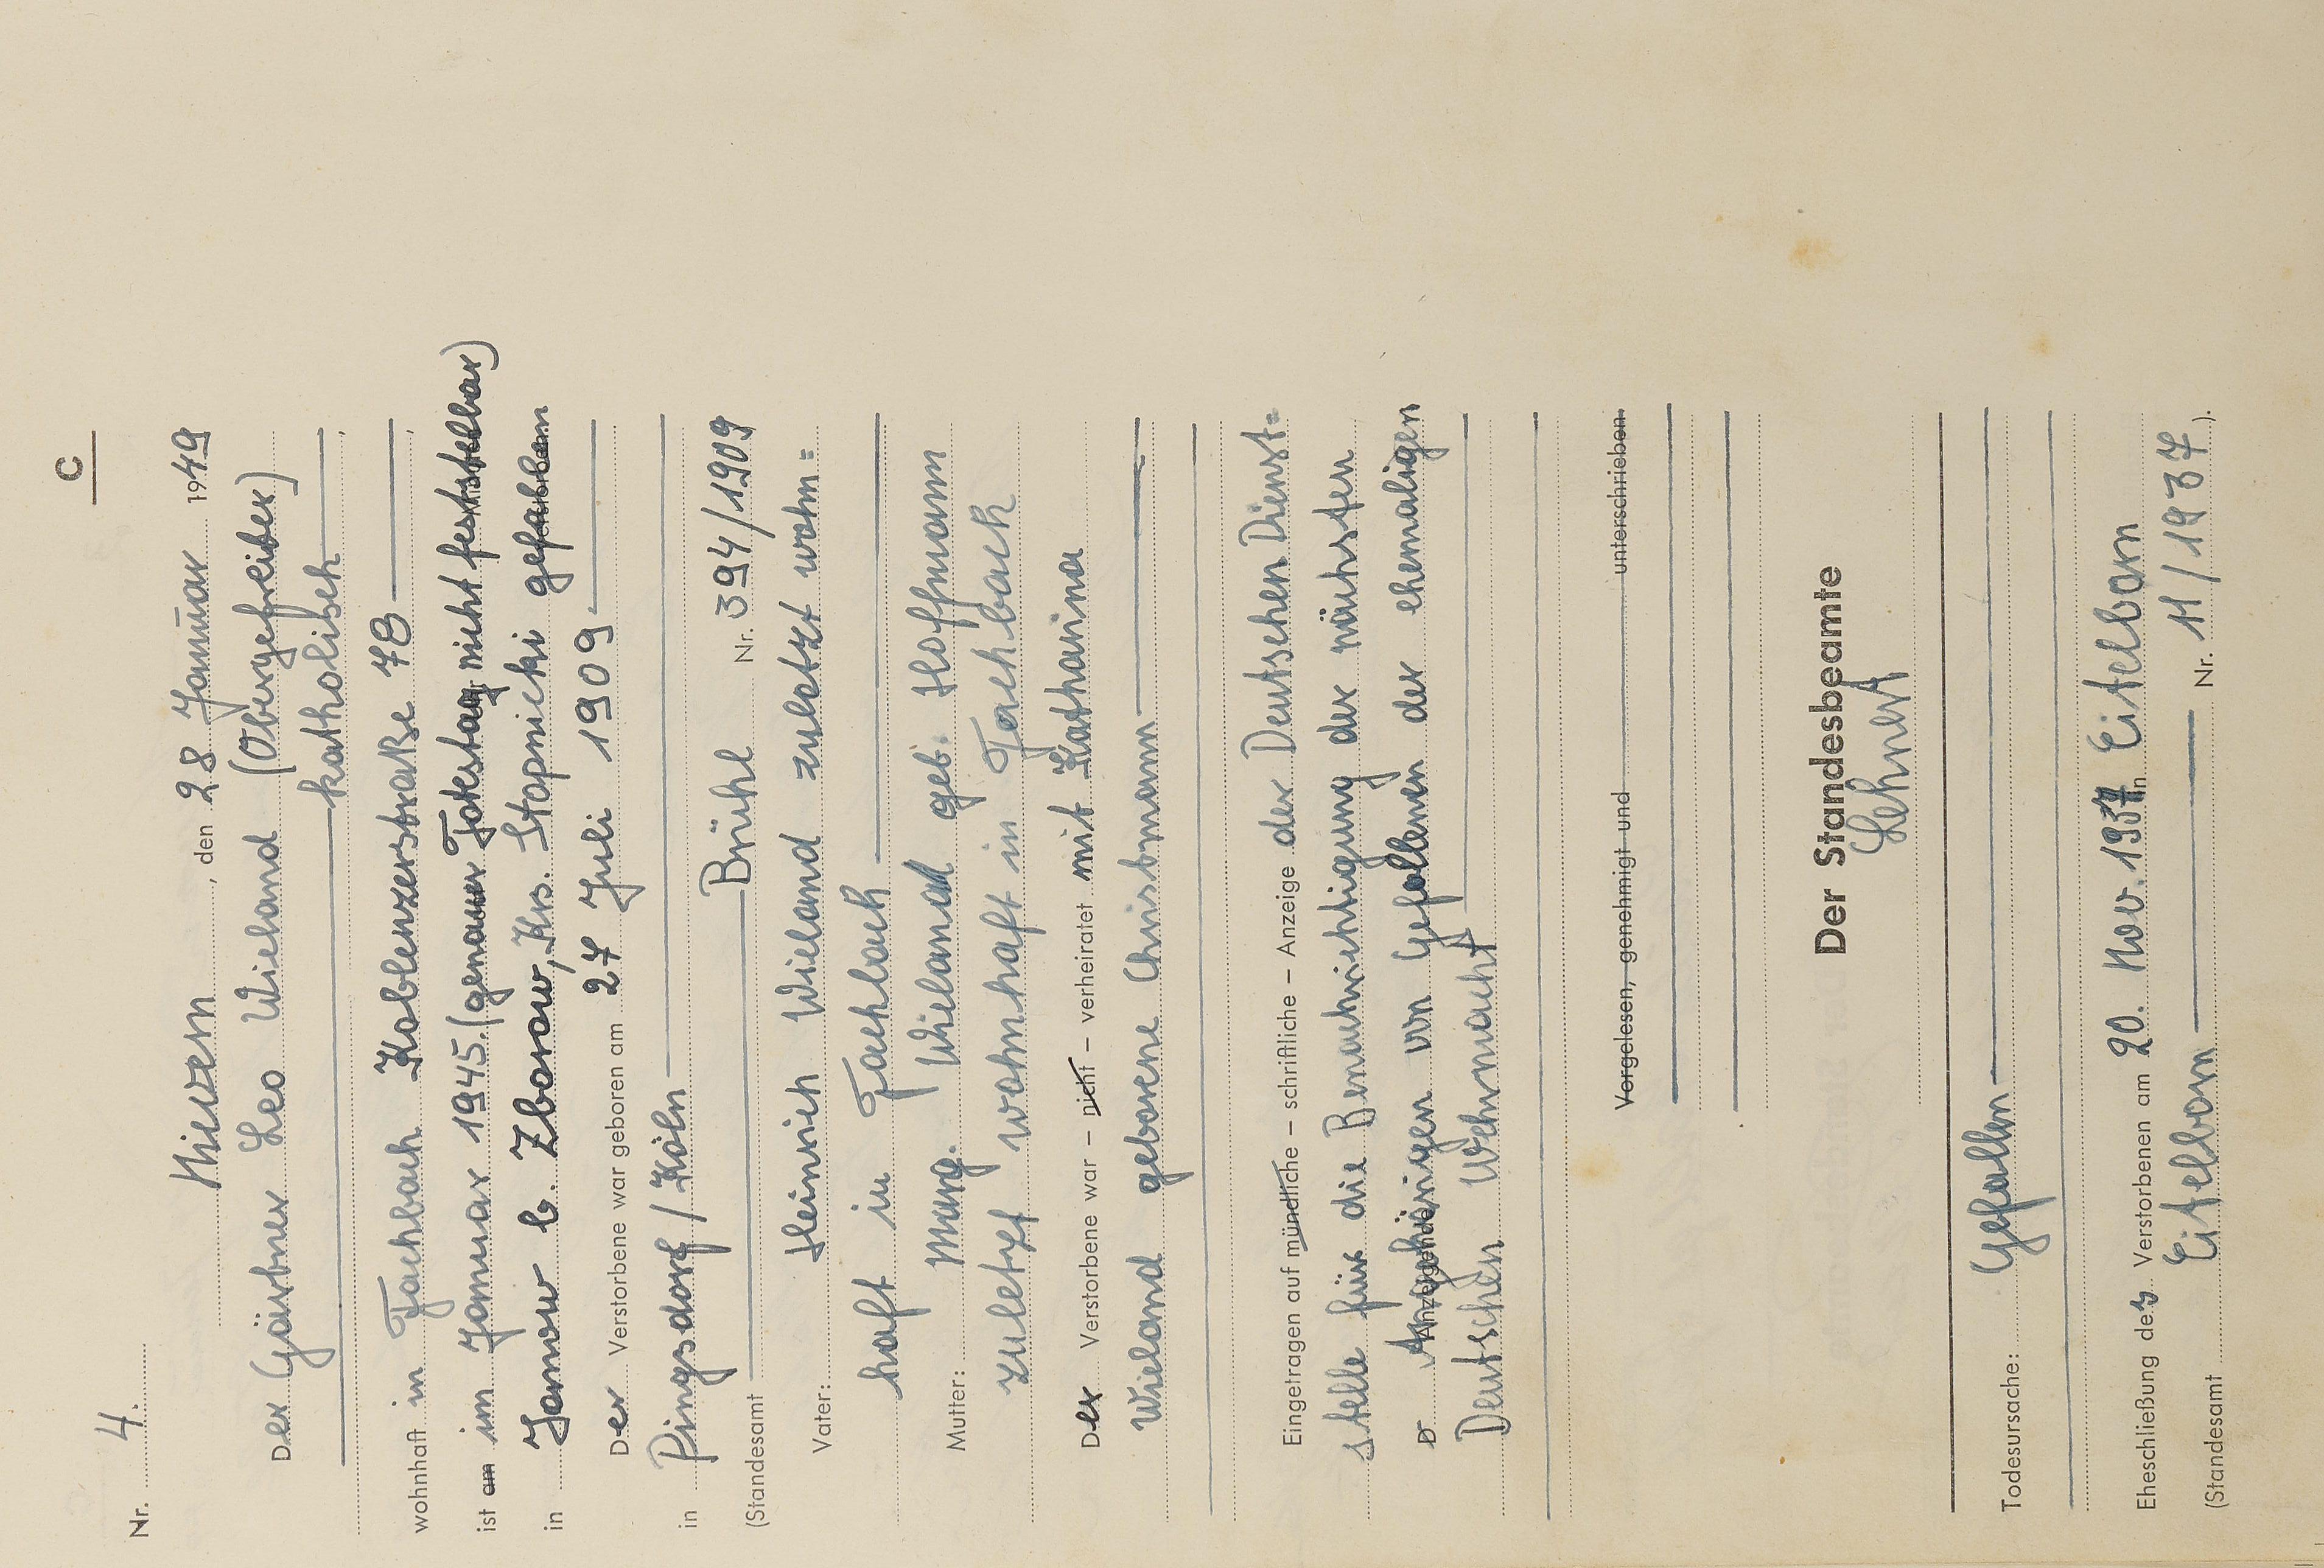 C
Nr. 4.
Nievern, den 28 Januar 1949
Der Gärtner Leo Wieland (Obergefreiter)
katholisch
wohnhaft in Fachbach Koblenzerstraße 78
ist am im Januar 1945. (genauer Todestag nicht feststellbar)
in Janow b. Zborow, Krs. Stopnicki gefallen
Der Verstorbene war geboren am 27 Juli 1909.
in Pingsdorf / Köln
(Standesamt Brühl Nr. 394/1909
Vater: Heinrich Wieland zuletzt wohn=
haft in Fachbach
Mutter: Marg. Wieland geb. Hoffmann
zuletzt wohnhaft in Fachbach
Der Verstorbene war – nicht – verheiratet mit Katharina
Wieland geborene Christmann
Eingetragen auf mündliche – schriftliche – Anzeige der Deutschen Dienst=
stelle für die Benachrichtigung der nächsten
D Anzeigende Angehörigen von Gefallenen der ehemaligen
Deutschen Wehrmacht
Vorgelesen, genehmigt und unterschrieben.
Der Standesbeamte
Lehnert
Todesursache: Gefallen
Eheschließung des Verstorbenen am 20. Nov. 1937 in Eitelborn
(Standesamt Eitelborn Nr. 11/1937).